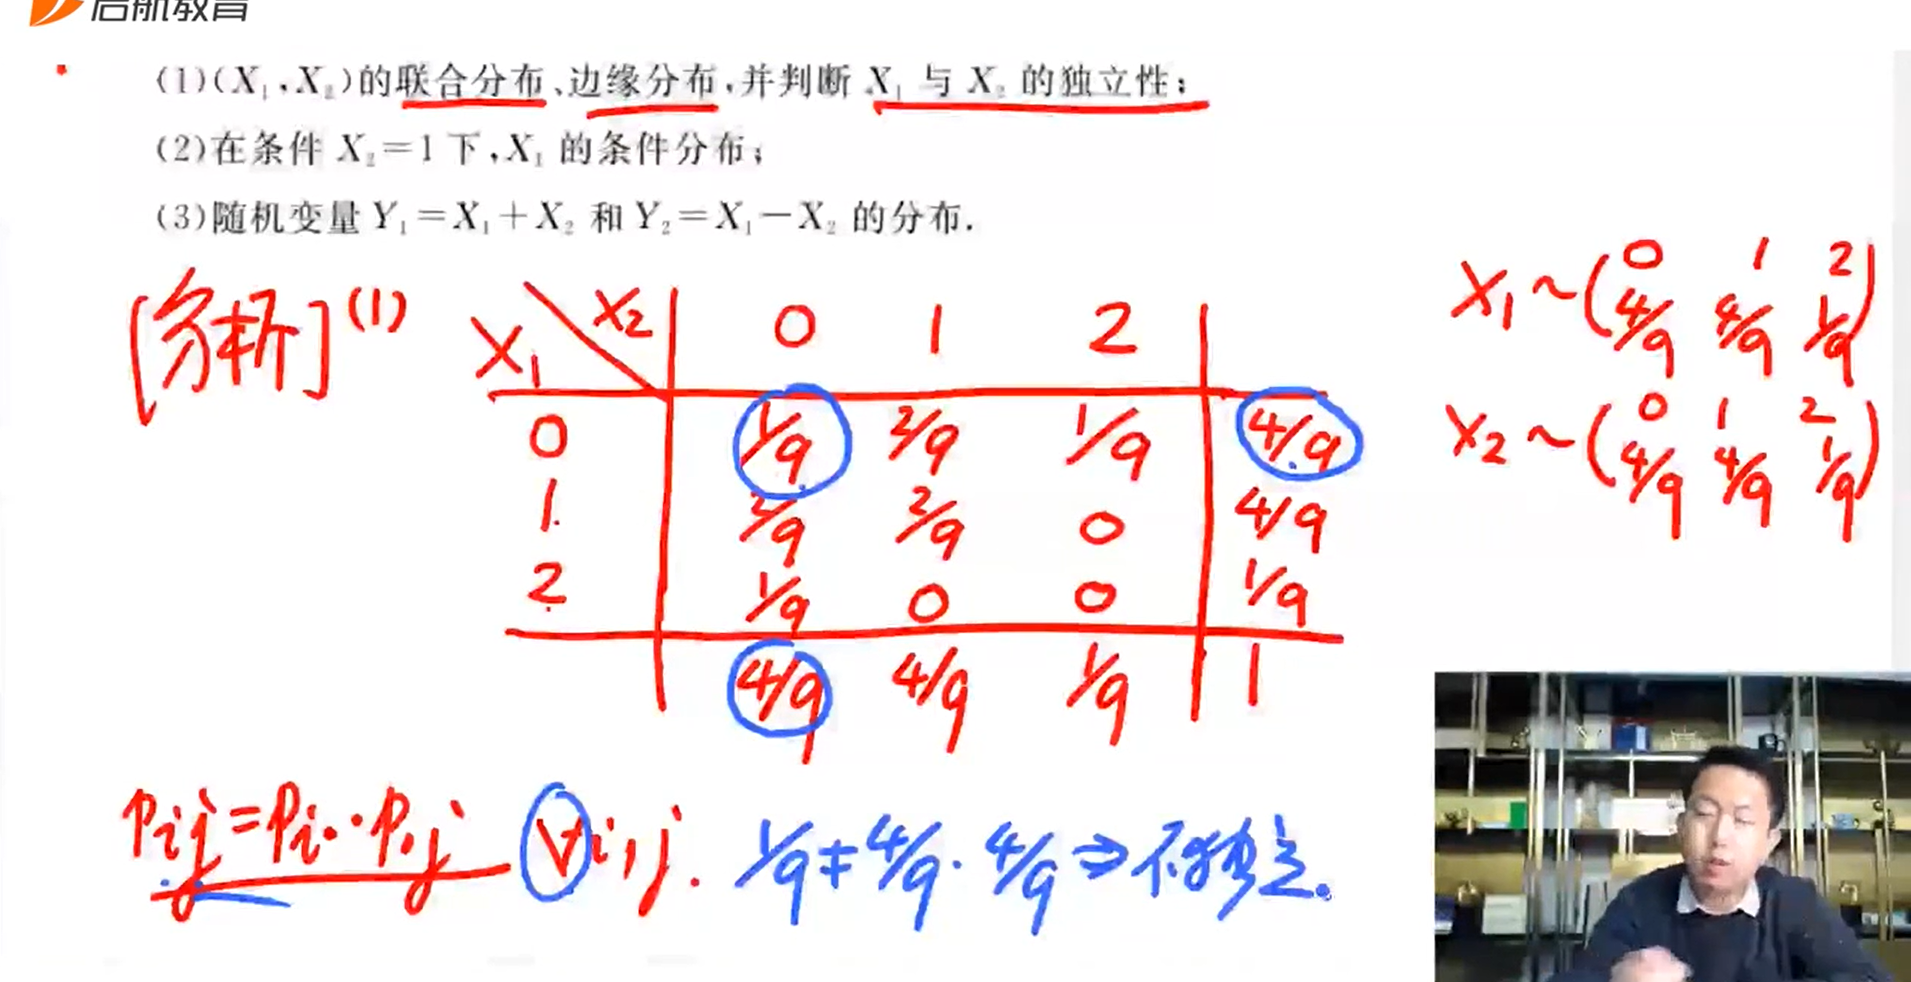 启航教育
(1)(X₁,X₂)的联合分布、边缘分布,并判断 X₁ 与 X₂ 的独立性;
(2)在条件 X₂=1下,X₁ 的条件分布;
(3)随机变量 Y₁=X₁+X₂ 和 Y₂=X₁-X₂ 的分布.
[分析](1)
X₁ X₂ 0 1 2
0 1/9 2/9 1/9 4/9
1 2/9 2/9 0 4/9
2 1/9 0 0 1/9
4/9 4/9 1/9 1
X₁~(0 1 2
4/9 4/9 1/9)
X₂~(0 1 2
4/9 4/9 1/9)
Pij=Pi.·P.j ∀i,j. 1/9≠4/9·4/9⇒不独立.